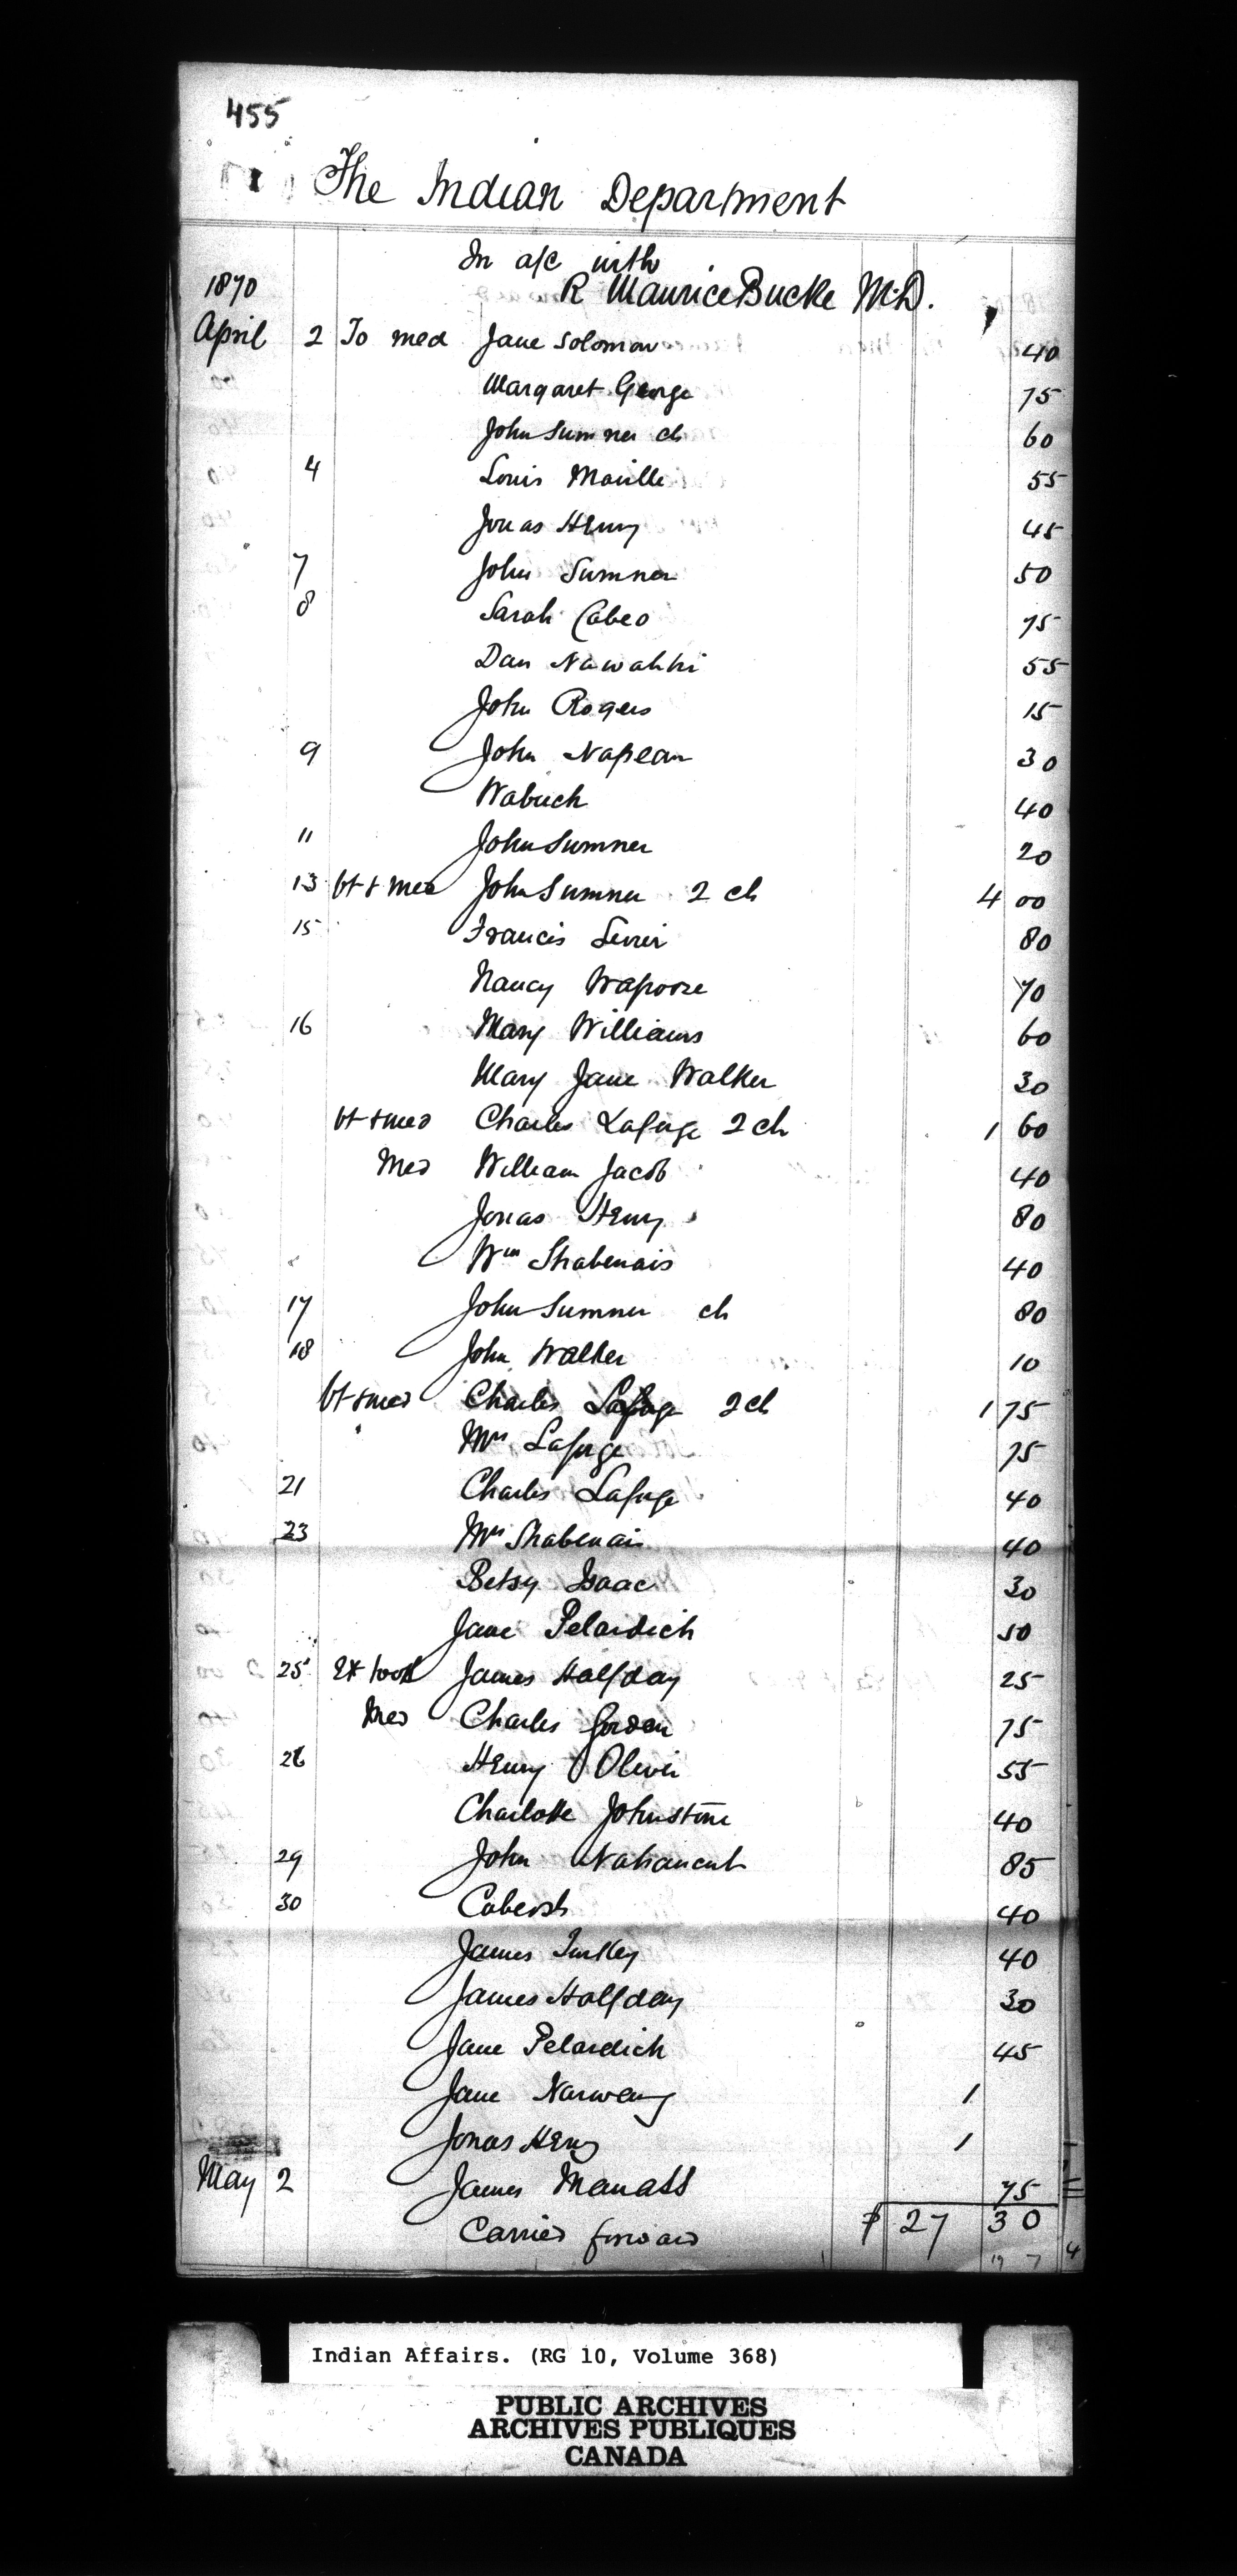 455
The Indian Department
In a/c with
1870 R Maurice Bucke M.D.
April 2 To med Jane Solomon 40
Margaret George 75
John Sumner ch 60
4 Louis Maville 55
Jonas Henry 45
7 John Sumner 50
8 Sarah Cabeo 75
Dan Nawahki 55
John Rogers 15
9 John Napean 30
Wabuch 40
11 John Sumner 20
13 vt & med John Sumner 2 ch 4 00
15 Francis 80
Nancy Wapoose 70
16 Mary Williams 60
Mary Jane Walker 30
vt & med Charles Laforge 2 ch 1 60
Med William Jacob 40
Jonas Henry 80
Wm Shabenais 40
17 John Sumner ch 80
18 John Walker 10
vt & med Charles Laforge 2 ch 1 75
Mrs Laforge 75
21 Charles Laforge 40
23 Mrs Shabenais 40
Betsy Isaac 30
Jane Pelardich 50
25 Ex tooth James Halfday 25
Med Charles Gordon 75
26 Henry Oliver 55
Charlotte Johnstone 40
29 John 85
30 Cabeosh 40
James Turkey 40
James Halfday 30
Jane Pelardich 45
Jane 1
Jonas Henry 1
May 2 James Manass 75
Carried forward $ 27 30
19 7 4
Indian Affairs. (RG 10, Volume 368)
PUBLIC ARCHIVES
ARCHIVES PUBLIQUES
CANADA